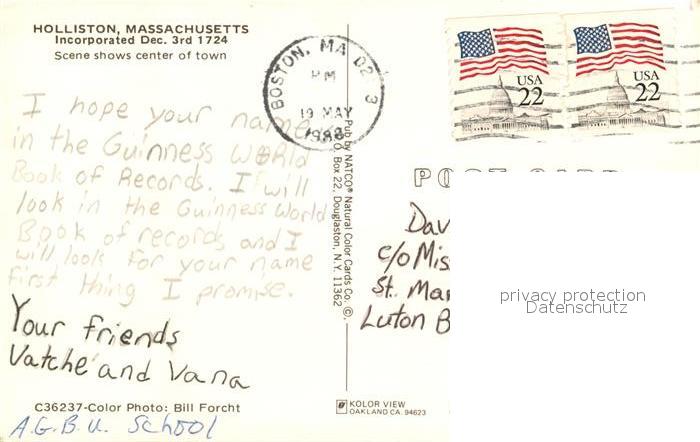 HOLLISTON, MASSACHUSETTS
Incorporated Dec. 3rd 1724
Scene shows center of town
I hope your name
in the Guinness World
Book of Records. I will
look in the Guinness World
Book of records and I
will look for your name
first thing I promise.
Your friends
Vatche and Vana
C36237-Color Photo: Bill Forcht
A.G.B.U. School
Pub by NATCO® Natural Color Cards Co. ©,
P.O. Box 22, Douglaston, N.Y. 11362
KOLOR VIEW
OAKLAND CA. 94623
BOSTON, MA 02
PM
19 MAY
1988
USA
22
USA
22
POST CARD
Dav
c/o Mis
St. Mar
Luton B
privacy protection
Datenschutz